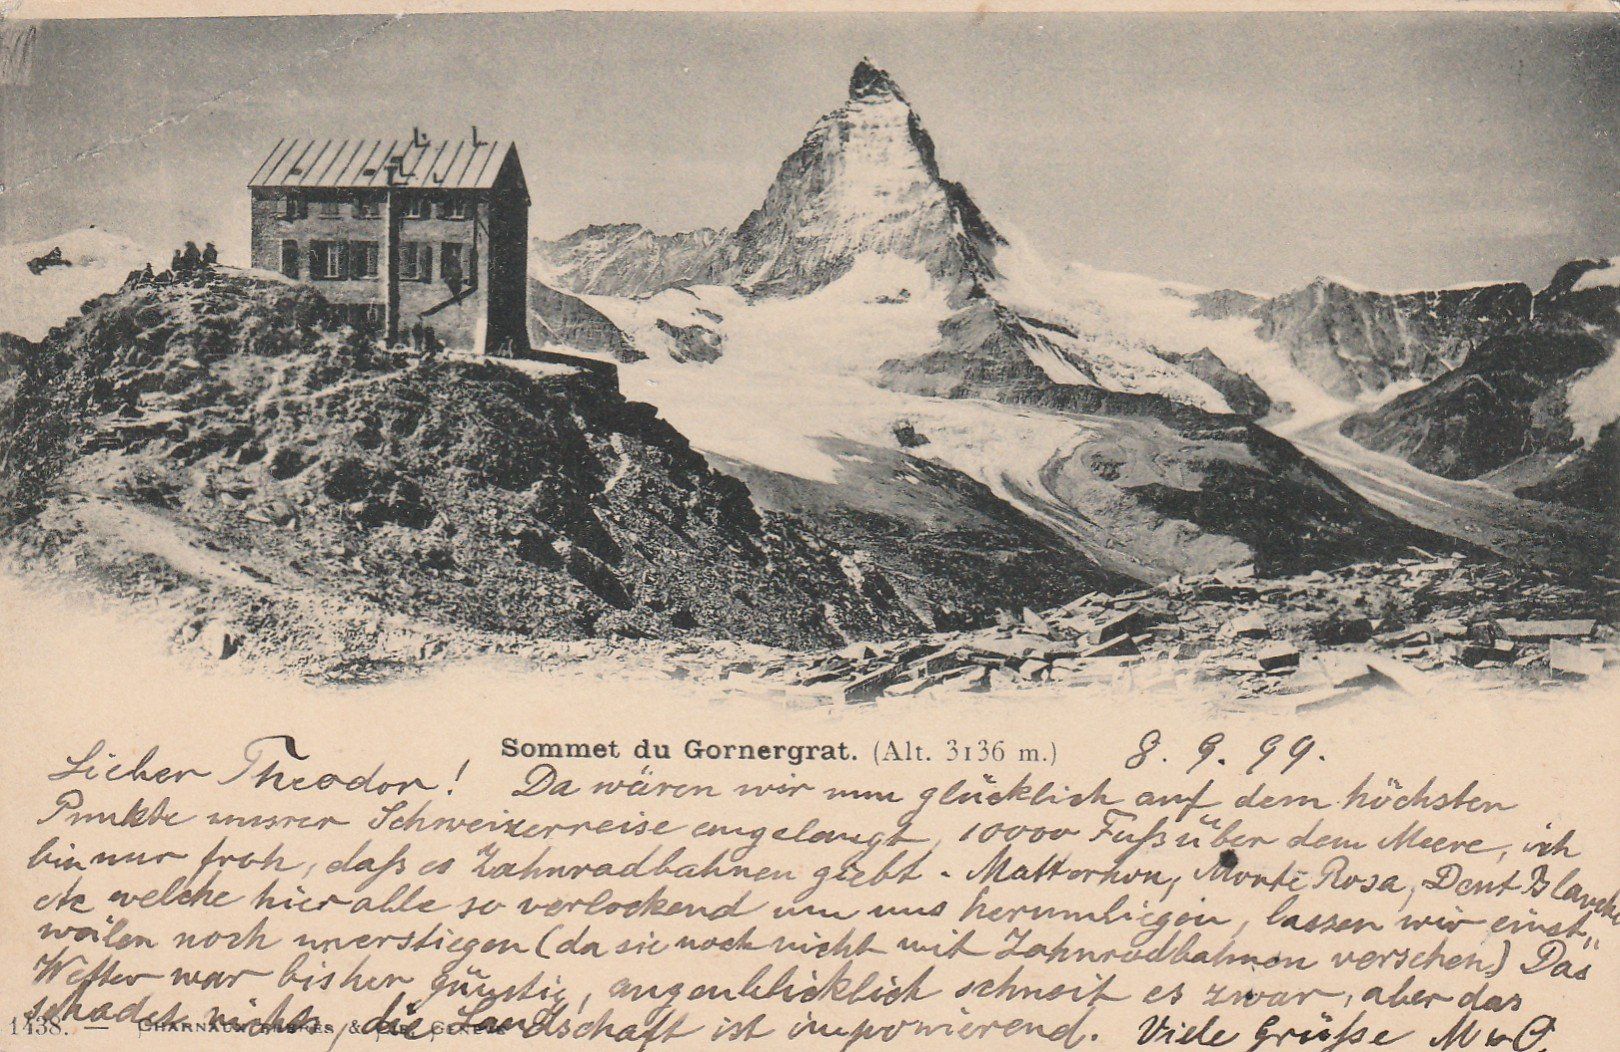 Sommet du Gornergrat. (Alt. 3136 m.) 8. 9. 99.
Lieber Theodor! Da wären wir nun glücklich auf dem höchsten
Punkte unsrer Schweizerreise angelangt, 10000 Fuß über dem Meere, ich
bin nur froh, daß es Zahnradbahnen giebt. Matterhorn, Monte Rosa, Dent Blanche
etc welche hier alle so verlockend um uns herumliegen, lassen wir einst
weilen noch unerstiegen (da sie noch nicht mit Zahnradbahnen versehen) Das
Wetter war bisher günstig, augenblicklich schneit es zwar, aber das
schadet nichts, die Landschaft ist imponierend. Viele Grüße M u O.
1438. — Charnaux Frères & Cie, Genève